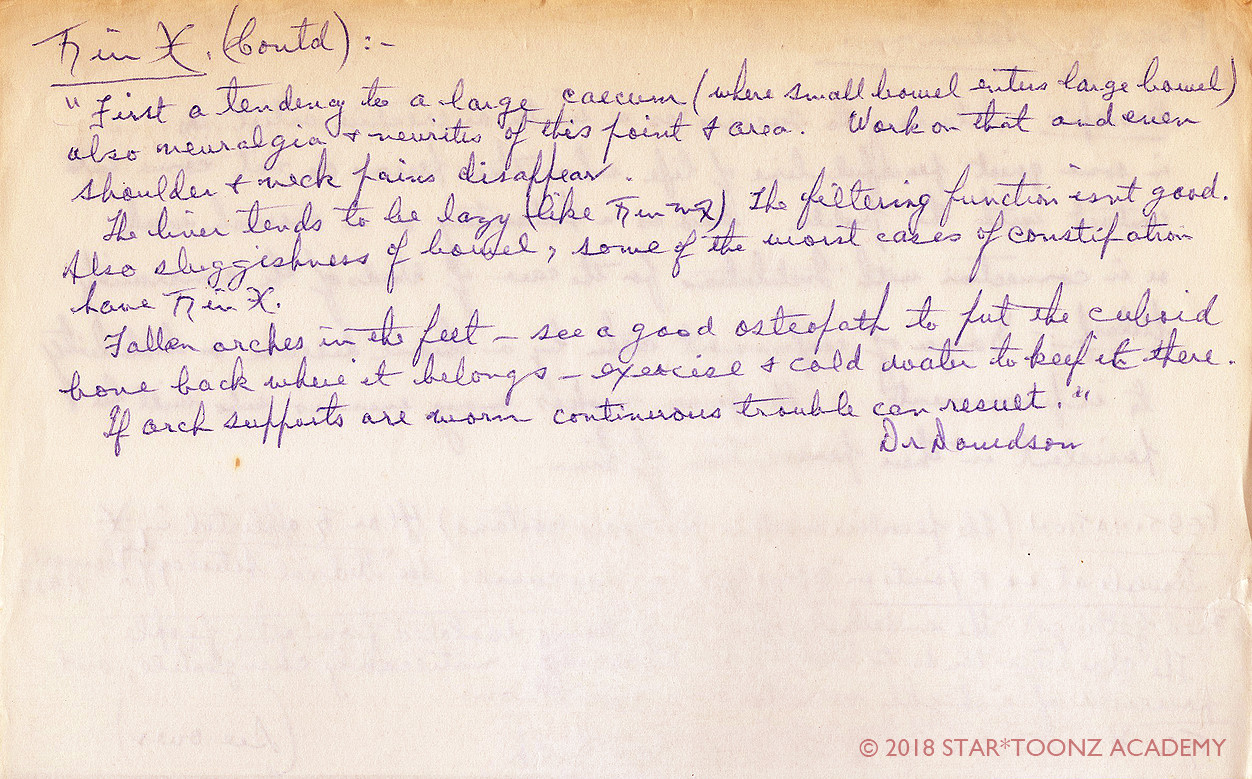 ♄ in ♓. (Contd) :-
"First a tendency to a large caecum (where small bowel enters large bowel)
also neuralgia & neurites of this point & area. Work on that and even
shoulder & neck pains disappear.
The liver tends to be lazy (like ♄ in) The filtering function isn't good.
Also sluggishness of bowel, some of the worst cases of constipation
have ♄ in ♓.
Fallen arches in the feet - see a good osteopath to put the cuboid
bone back where it belongs - exercise & cold water to keep it there.
If arch supports are worn continuous trouble can result."
Dr Davidson
© 2018 STAR*TOONZ ACADEMY